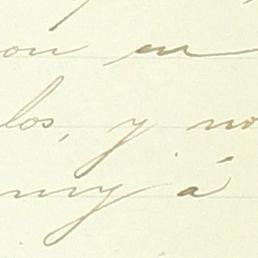 on en
los, y no
muy á